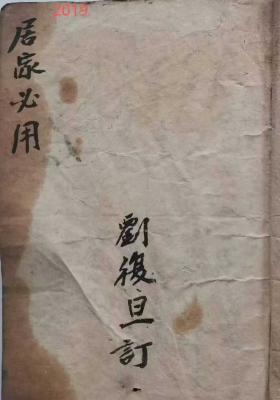 2019
居家必用
劉復旦訂